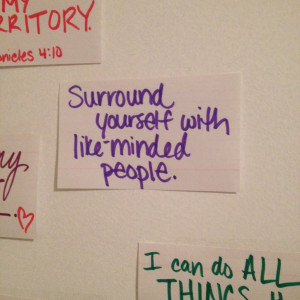 MY
RRITORY.
nicles 4:10
Surround
yourself with
like-minded
people.
my
I can do ALL
THINGS